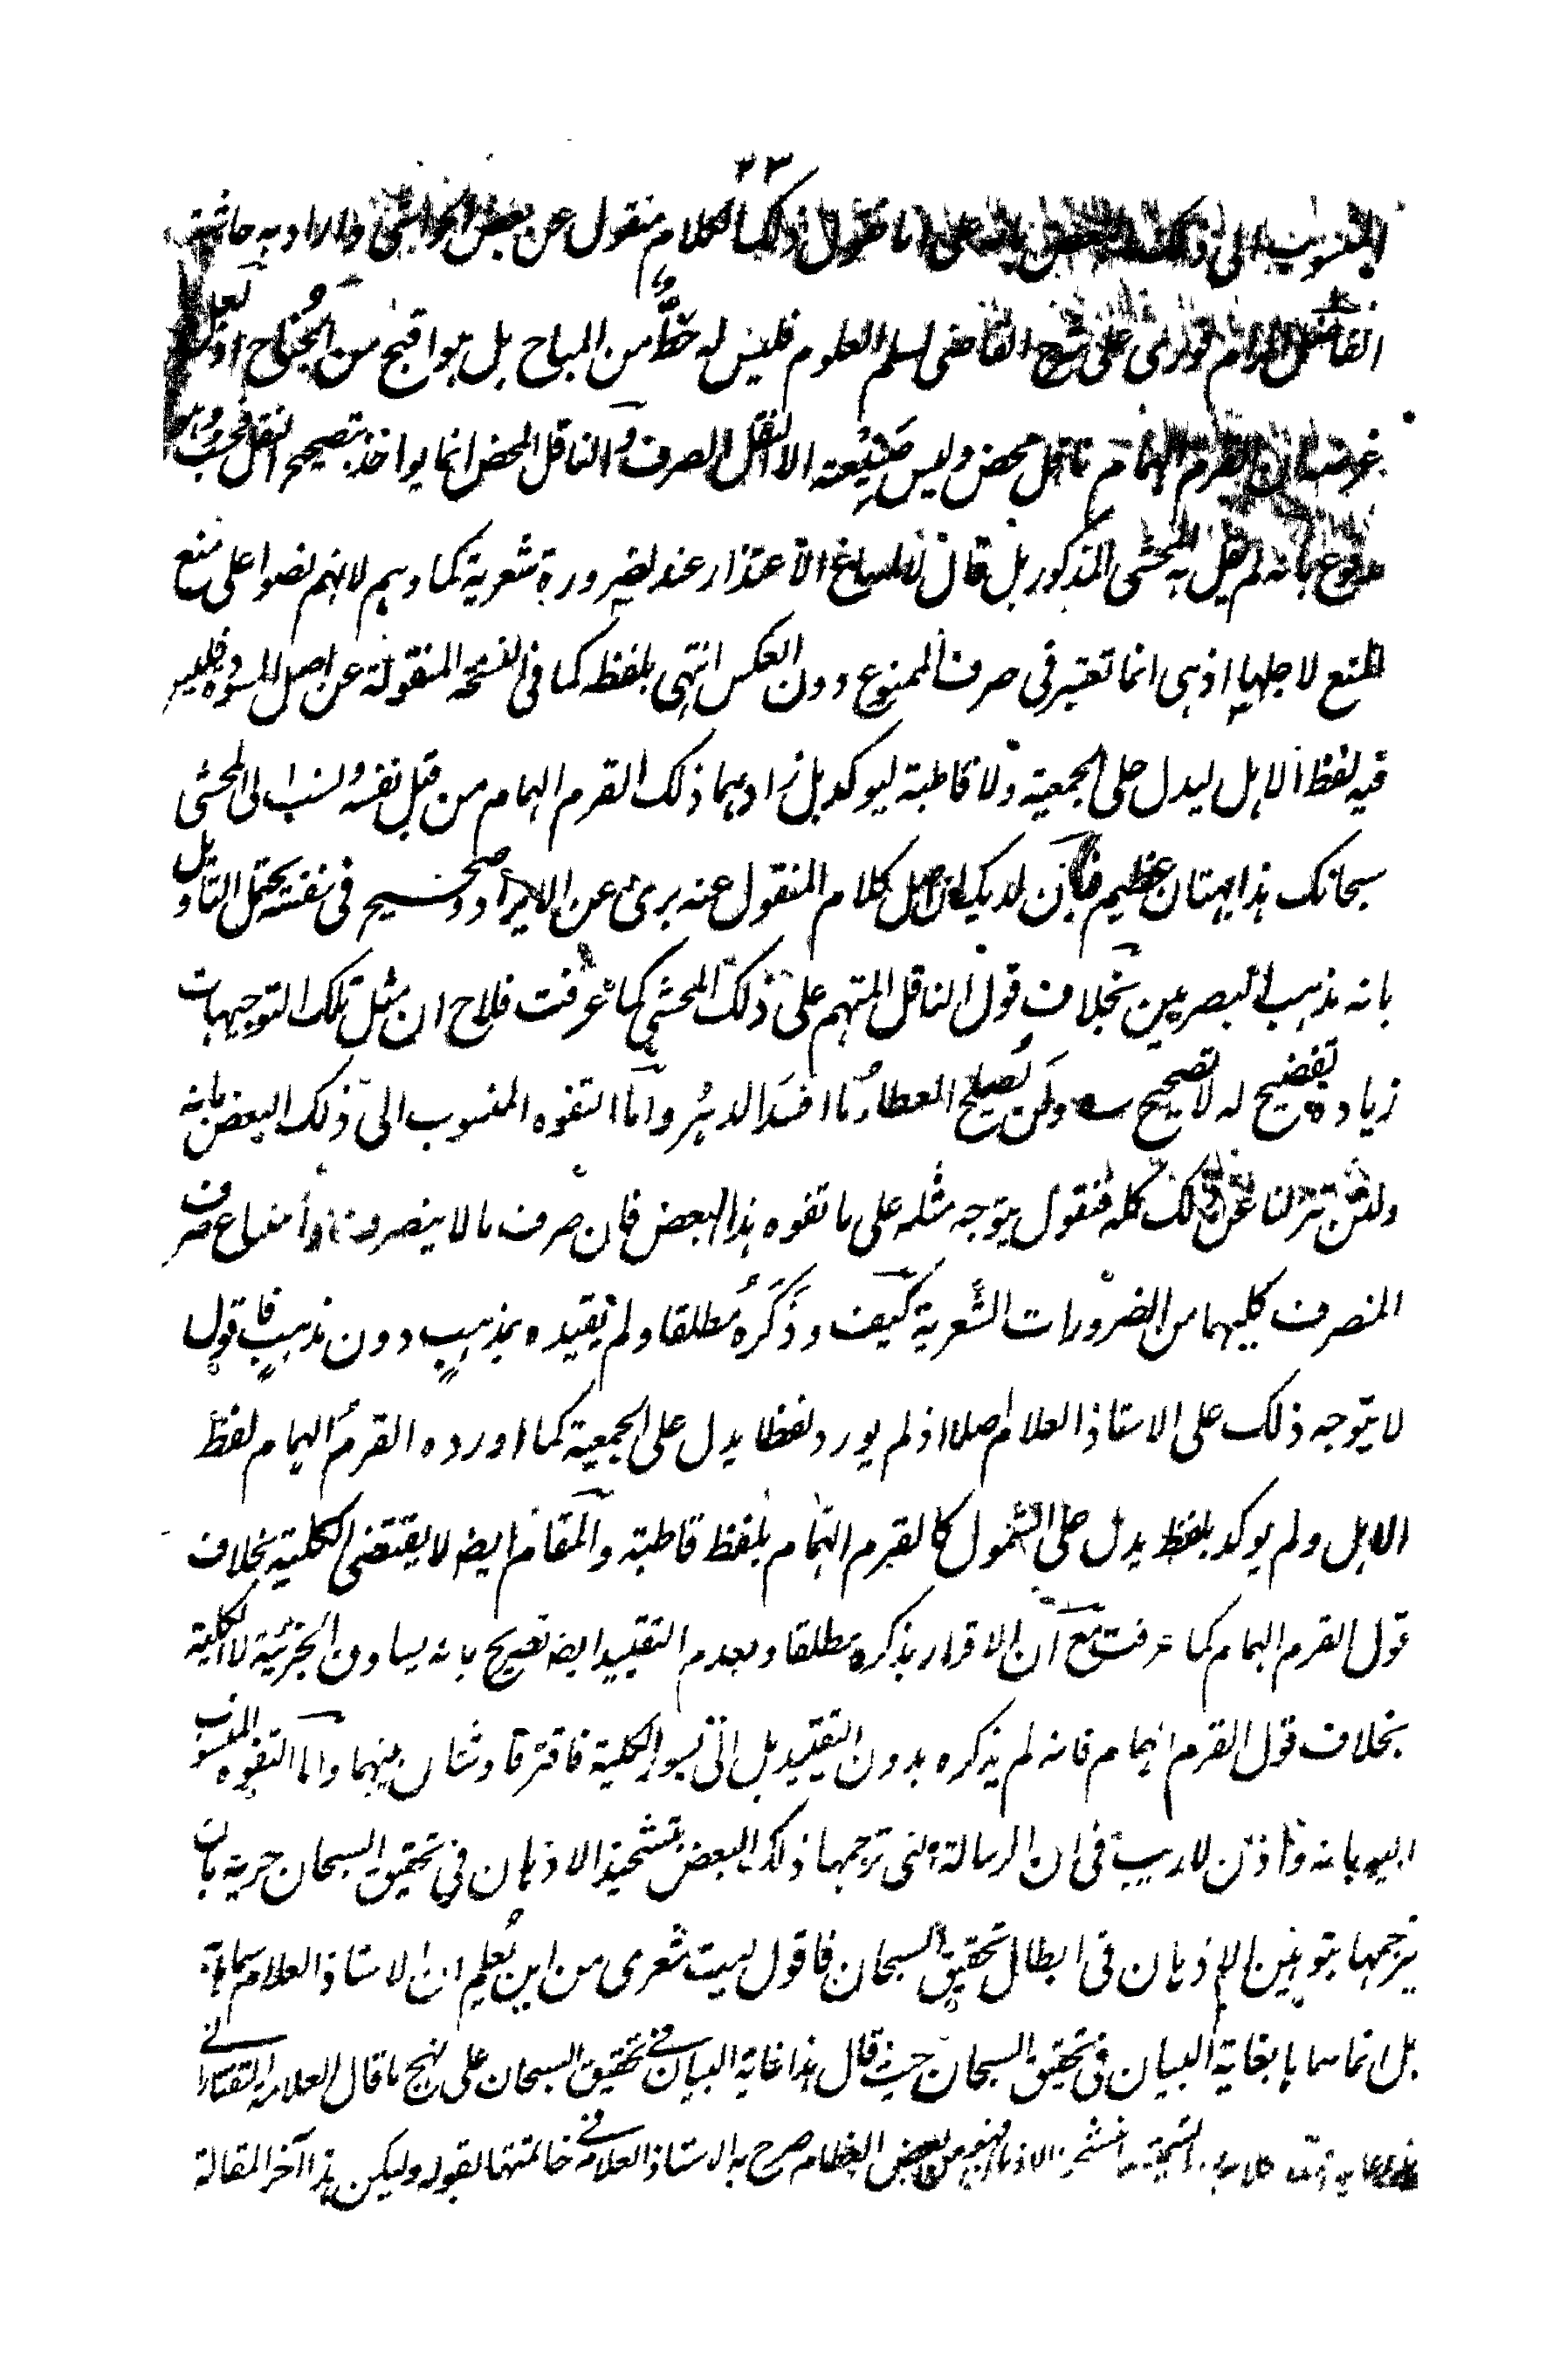 ٣٣
المنسوب الى ذلك البعض بانه على ما قول ذلك الكلام منقول عن بعض الحواشى والمراد به حاشية
الفاضل على شرح القاضى لسلم العلوم فليس له حظٌّ من المباح بل هو اقبح من الجُناح اذ لعل
غرضه ان القرم الهمام ناقل محض وليس صَنِيْعته الا النقل الصرف والناقل المحض انما يواخذ بتصحيح النقل فحسب وهو
مدفوع بانه لم يقل به المحشى المذكور بل قال لا مساغ الاعتذار عند لضرورة شعرية كما وهم لانهم نصوا على منع
المنع لاجلها اذ هى انما تعتبر فى صرف الممنوع دون العكس انتهى بلفظه كما فى النسخة المنقولة عن اصل المسودة فليس
فيه لفظ الاهل ليدل على الجمعية ولا قاطبة ليوكد بل زادهما ذلك القرم الهمام من قبل نفسه ونسب الى المحشى
سبحانك هذا بهتان عظيم فاذن لديك ان اصل كلام المنقول عنه برئ عن الايراد وصحيح فى نفسه يحتمل التاويل
بانه مذهب البصريين بخلاف قول الناقل المتهم على ذلك المحشى كما عرفت فلاح ان مثل تلك التوجيهات
زيادة تفضيح له لا تصحيح ــه ولن يُصلِح العطارُ ما افسَدَ الدهرُ واما التفوه المنسوب الى ذلك البعض بانه
ولئن تنزلنا عن ذلك كله فنقول يتوجه مثله على ما تفوه هذا البعض فان صرف ما لا ينصرف وامتناع صرف
المنصرف كليهما من الضرورات الشعرية كيف وذَكَرَهُ مُطلقا ولم يقيده بمذهبٍ دون مذهبٍ فاقول
لا يتوجه ذلك على الاستاذ العلام اصلا اذ لم يورد لفظا يدل على الجمعية كما اورده القرم الهمام لفظ
الاهل ولم يوكد بلفظ يدل على الشمول كالقرم الهمام بلفظ قاطبة والمقام ايضا لا يقتضى الكلية بخلاف
قول القرم الهمام كما عرفت مع ان الاقرار بذكره مطلقا وبعدم التقييد ايضا تصريح بانه يساوق الجزئية لا الكلية
بخلاف قول القرم الهمام فانه لم يذكره بدون التقييد بل اتى بسور الكلية فافترقا وشتان بينهما واما التفوه المنسوب
اليه بانه واذن لا ريب فى ان الرسالة التى ترجمها ذلك البعض بتشحيذ الاذهان فى تحقيق السبحان حرية بان
يترجمها بتوهين الاذهان فى ابطال تحقيق السبحان فاقول ليت شعرى من اين يُعلم ان الاستاذ العلام سماها به
بل انما سماها بغاية البيان فى تحقيق السبحان حيث قال هذا غاية البيان فى تحقيق السبحان على نهج ما قال العلامة التفتازانى
من بعض العظام صرح به الاستاذ العلام فى خاتمتها بقوله وليكن هذا آخر المقالة